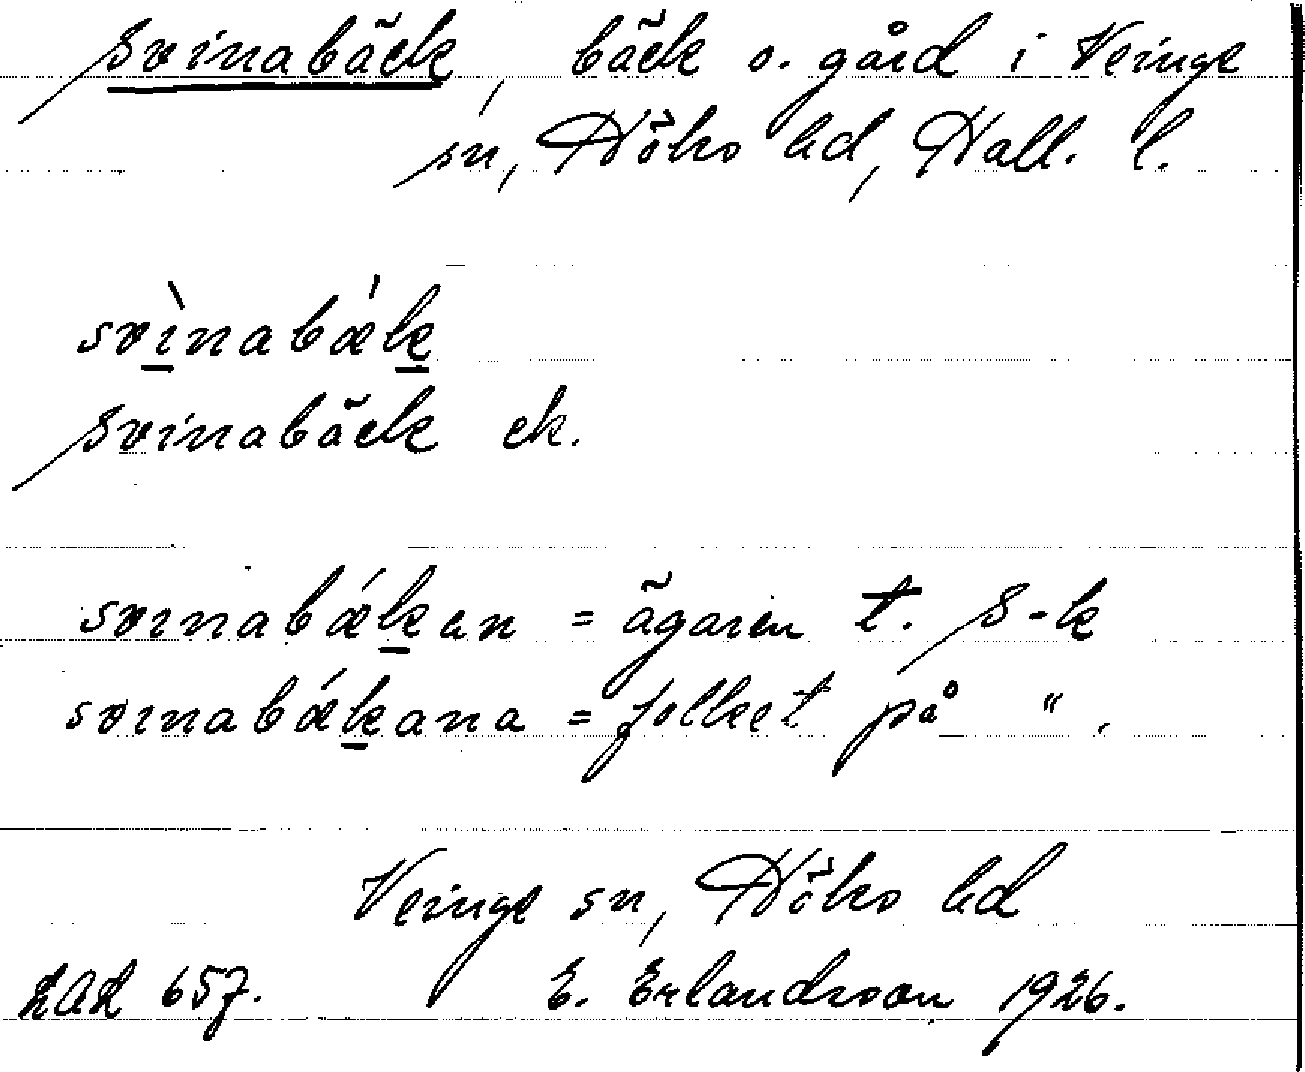 Svinabäck, bäck o. gård i Veinge
sn, Höks hd, Hall. l.
svìnabǽk
Svinabäck ek.
svınabǽkan = ägaren t. S-k
svınabǽkana = folket på " .
Veinge sn, Höks hd
LAL 657. E. Erlandsson 1926.